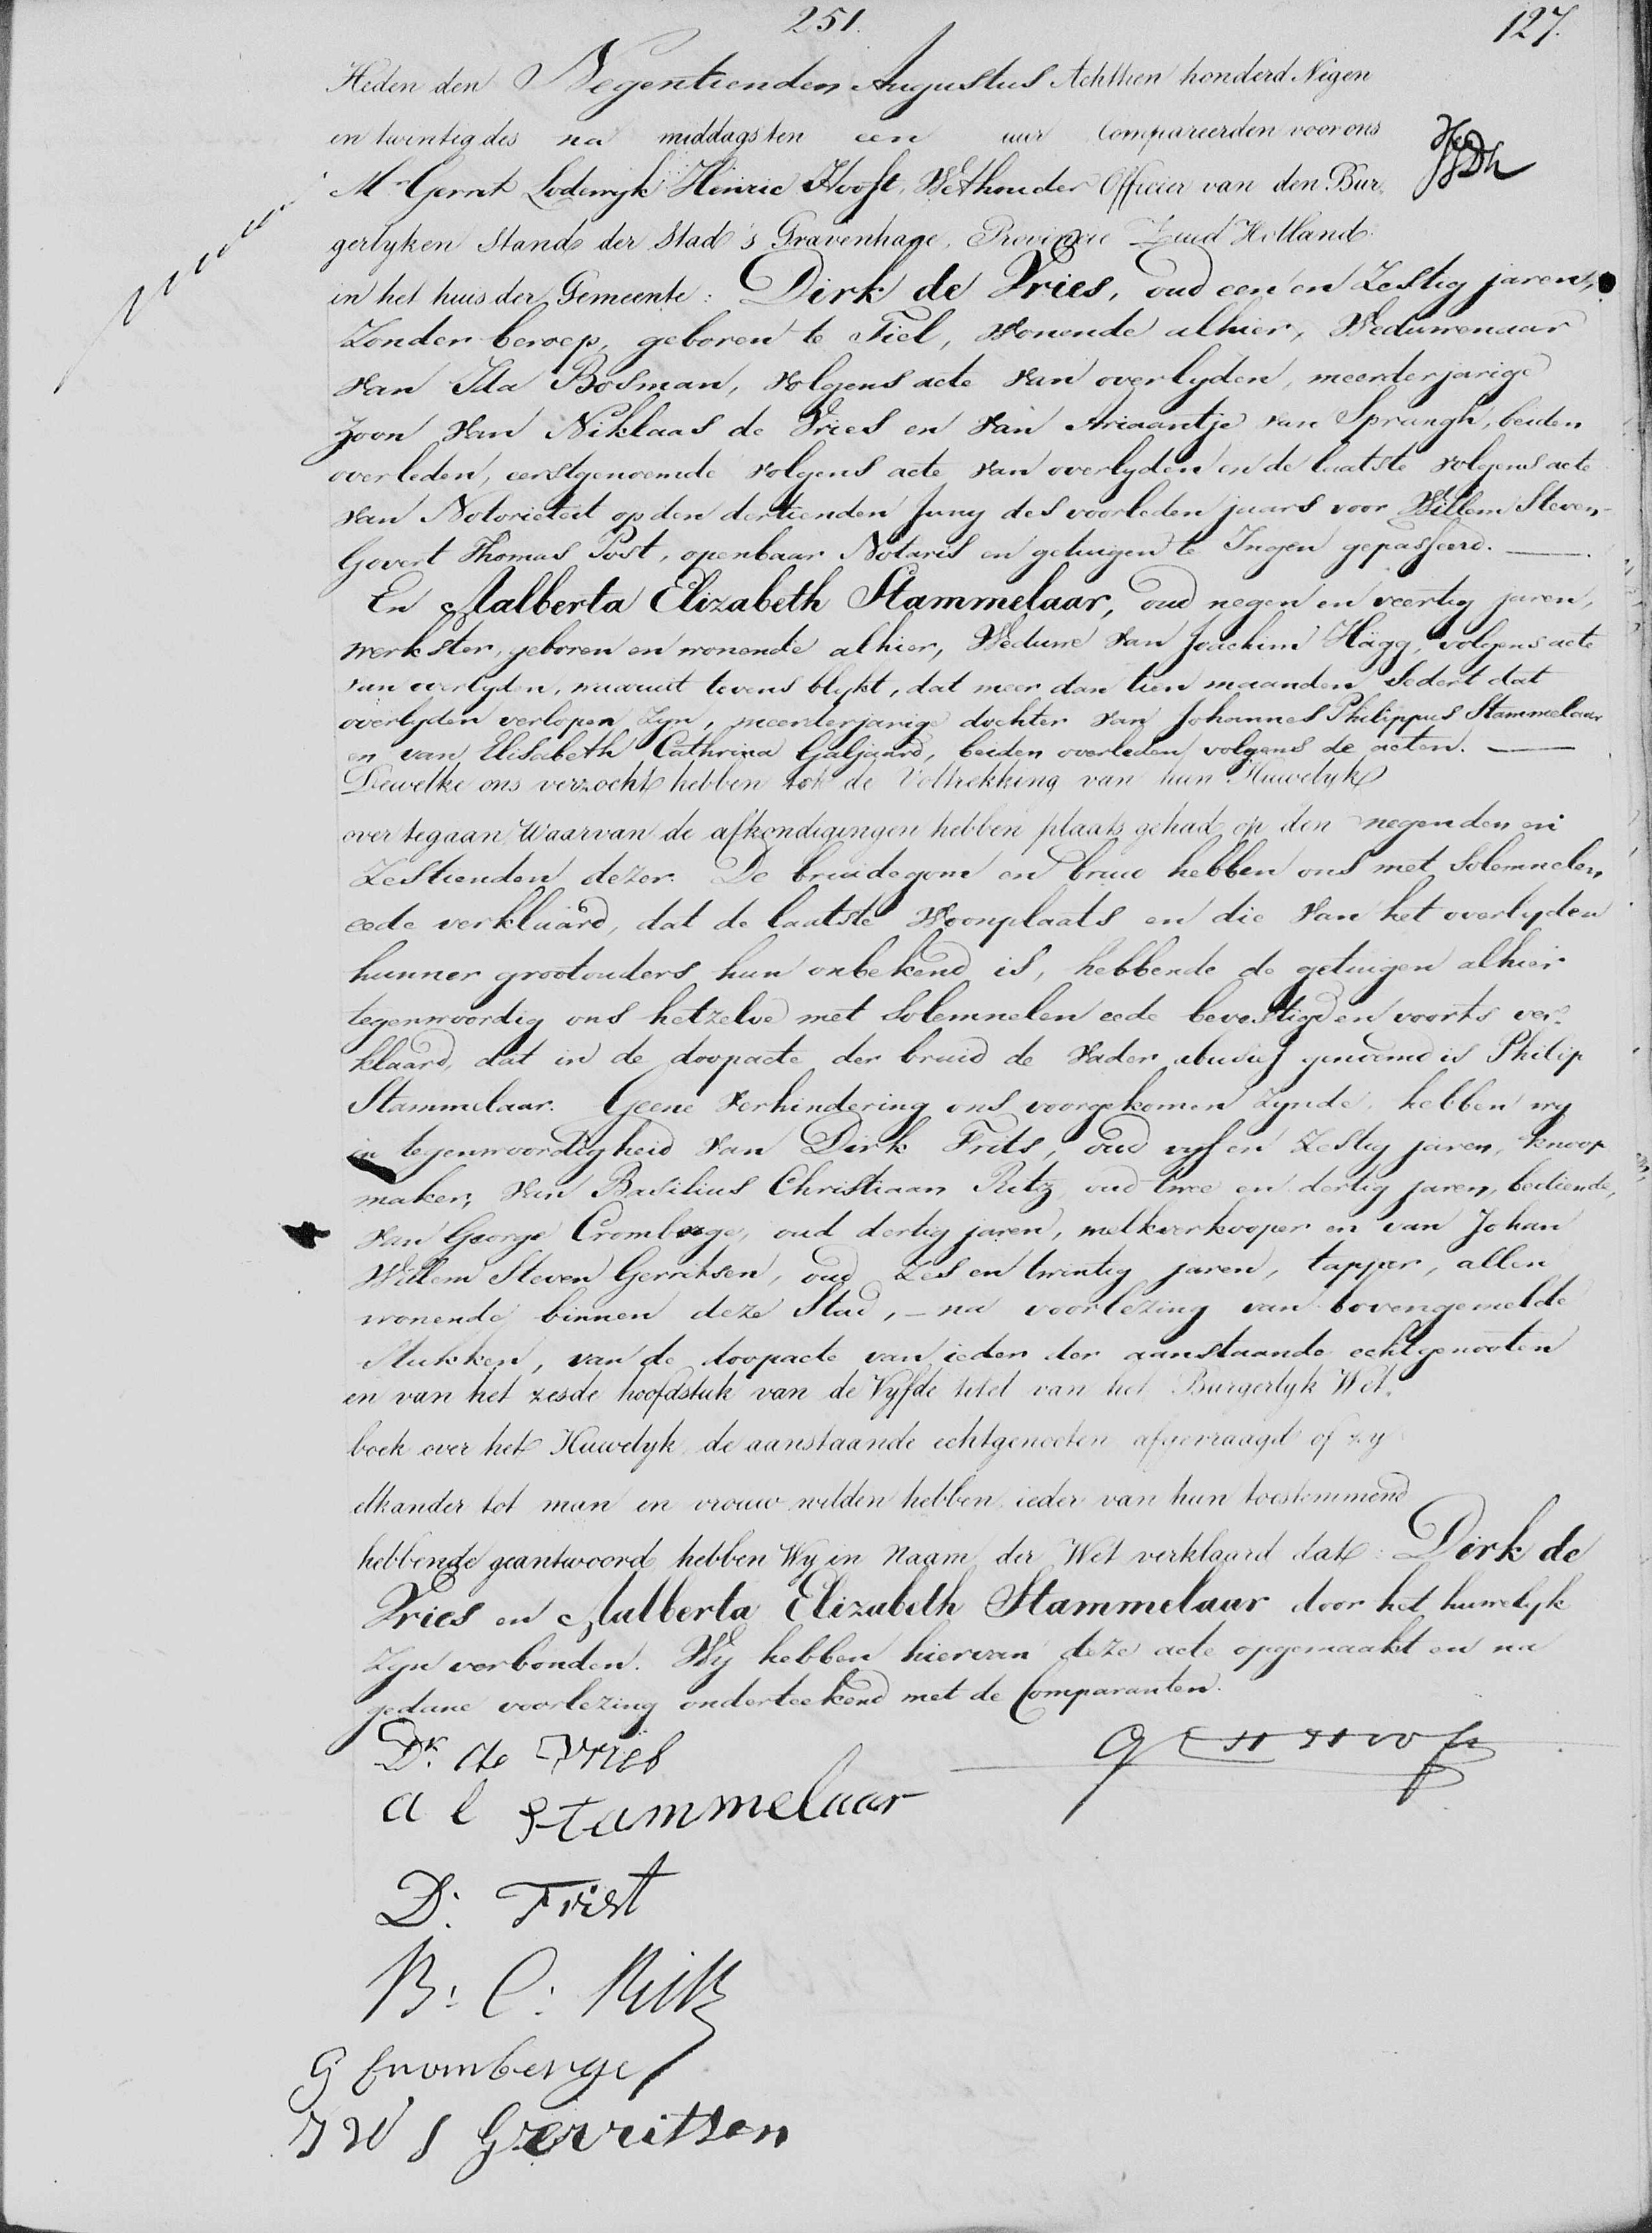 251.
127.
Heden den Negentienden Augustus Achttien honderd Negen
en twintig des na middags ten een uur Compareerden voor ons
Mr Gerrit Lodewyk Hinric Hooft, Wethouder Officier van den Bur-
gerlyken Stand der Stad 's Gravenhage, Provincie Zuid Holland
in het huis der Gemeente: Dirk de Vries, oud een en Zestig jaren,
Zonder beroep, geboren te Tiel, wonende alhier, Weduwenaar
van Ida Bosman, volgens acte van overlyden, meerderjarige
Zoon van Niklaas de Vries en van Ariaantje van Sprungh, beiden
overleden, eerstgenoemde volgens acte van overlyden en de laatste volgens acte
van Notorieteit op den dertienden Juny des voorleden jaars voor Willem Steven
Govert Thomas Post, openbaar Notaris en getuigen te Ingen gepasseerd.
En Aalberta Elizabeth Stammelaar, oud negen en veertig jaren,
werkster, geboren en wonende alhier, Weduwe van Joachim Hägg, volgens acte
van overlyden, waaruit tevens blykt, dat meer dan tien maanden sedert dat
overlyden verlopen zyn, meerderjarige dochter van Johannes Philippus Stammelaar
en van Elisabeth Cathrina Galjaard, beiden overleden volgens de acten.
Dewelke ons verzocht hebben tot de Voltrekking van hun Huwelyk
over tegaan Waarvan de afkondigingen hebben plaats gehad op den negenden en
Zestienden dezer. De bruidegom en bruid hebben ons met Solemnelen
eede verklaard, dat de laatste Woonplaats en die van het overlyden
hunner grootouders hun onbekend is, hebbende de getuigen alhier
tegenwoordig ons hetzelve met Solemnelen eede bevestigd en voorts ver-
klaard, dat in de doopacte der bruid de Vader abusief genoemd is Philip
Stammelaar. Geene verhindering ons voorgekomen Zynde, hebben wy
in tegenwoordigheid van Dirk Frits, oud vyf en Zestig jaren, knoop
maker, van Basilius Christiaan Ritz, oud twee en dertig jaren, bediende,
van George Crombenge, oud dertig jaren, melkverkooper en van Johan
Willem Steven Gerritsen, oud Zes en twintig jaren, tapper, allen
wonende binnen deze Stad, - na voorlezing van bovengemelde
Stukken, van de doopacte van ieder der aanstaande echtgenooten
en van het zesde hoofdstuk van de Vyfde titel van het Burgerlyk Wet-
boek over het Huwelyk, de aanstaande echtgenooten afgevraagd of zy
elkander tot man en vrouw wilden hebben, ieder van hun toestemmend
hebbende geantwoord, hebben Wy in Naam der Wet verklaard dat: Dirk de
Vries en Aalberta Elizabeth Stammelaar door het huwelyk
Zyn verbonden. Wy hebben hiervan deze acte opgemaakt en na
gedane voorlezing onderteekend met de Comparanten.
Dk de Vries
a e Stammelaar
D: Frist
B: C: Ritz
G Crombenge
J W S Gerritsen